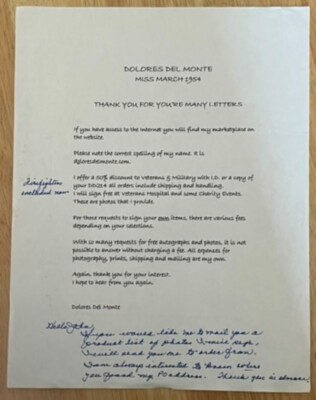 DOLORES DEL MONTE
MISS MARCH 1954
THANK YOU FOR YOU'RE MANY LETTERS
If you have access to the internet you will find my marketplace on
the website.
Please note the correct spelling of my name. It is
dgloresdelmonte.com
I offer a 20% discount to Veterans & Military with I.D. or a copy of
your DD214 all orders include shipping and handling.
I will sign free at Veterans Hospital and some Charity Events.
These are photos that I provide.
firefighters
For those requests to sign your own items, there are various fees
depending on your selections.
With so many requests for free autographs and photos, it is not
possible to answer without charging a fee. All expenses for
photography, prints, shipping and mailing are my own.
Again, thank you for your interest.
I hope to hear from you again.
Dolores Del Monte
Hello
If you would like me to mail you a
product list of photos I have kept,
I will send you one to order from.
I am always interested to know where
you found my PO address. Thank you in advance,